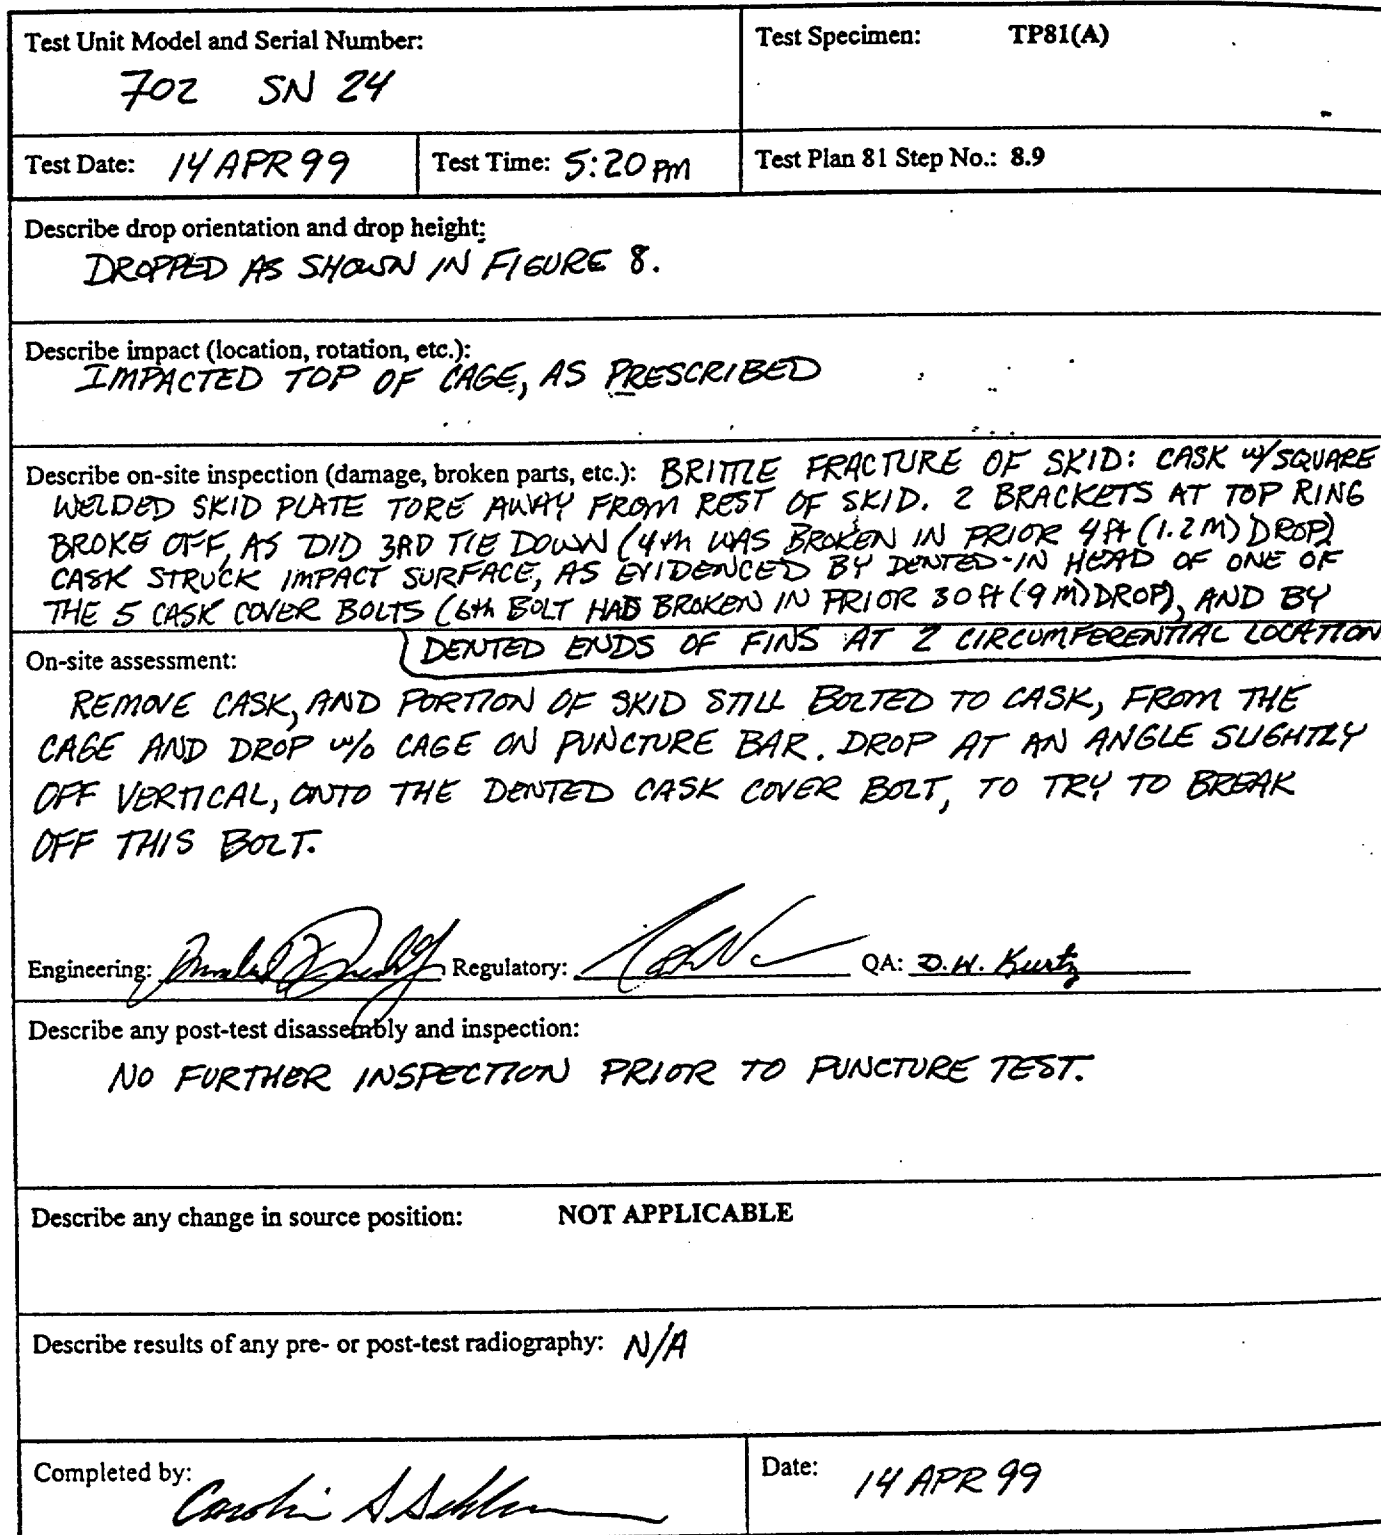 Test Unit Model and Serial Number:
702 SN 24
Test Specimen: TP81(A)
Test Date: 14 APR 99
Test Time: 5:20 PM
Test Plan 81 Step No.: 8.9
Describe drop orientation and drop height:
DROPPED AS SHOWN IN FIGURE 8.
Describe impact (location, rotation, etc.):
IMPACTED TOP OF CAGE, AS PRESCRIBED
Describe on-site inspection (damage, broken parts, etc.): BRITTLE FRACTURE OF SKID: CASK w/SQUARE
WELDED SKID PLATE TORE AWAY FROM REST OF SKID. 2 BRACKETS AT TOP RING
BROKE OFF, AS DID 3RD TIE DOWN (4th WAS BROKEN IN PRIOR 4 ft (1.2 M) DROP)
CASK STRUCK IMPACT SURFACE, AS EVIDENCED BY DENTED-IN HEAD OF ONE OF
THE 5 CASK COVER BOLTS (6th BOLT HAD BROKEN IN PRIOR 30 ft (9 M) DROP), AND BY
DENTED ENDS OF FINS AT 2 CIRCUMFERENTIAL LOCATION
On-site assessment:
REMOVE CASK, AND PORTION OF SKID STILL BOLTED TO CASK, FROM THE
CAGE AND DROP w/o CAGE ON PUNCTURE BAR. DROP AT AN ANGLE SLIGHTLY
OFF VERTICAL, ONTO THE DENTED CASK COVER BOLT, TO TRY TO BREAK
OFF THIS BOLT.
Engineering: Regulatory: QA: D.W. Kurtz
Describe any post-test disassembly and inspection:
NO FURTHER INSPECTION PRIOR TO PUNCTURE TEST.
Describe any change in source position: NOT APPLICABLE
Describe results of any pre- or post-test radiography: N/A
Completed by:
Date: 14 APR 99